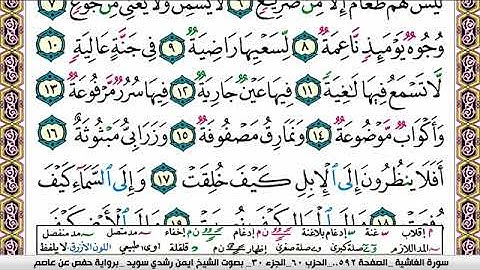 لَيْسَ لَهُمْ طَعَامٌ إِلَّا مِن ضَرِيعٍ ۝٦ لَّا يُسْمِنُ وَلَا يُغْنِي مِن جُوعٍ ۝٧
وُجُوهٌ يَوْمَئِذٍ نَّاعِمَةٌ ۝٨ لِّسَعْيِهَا رَاضِيَةٌ ۝٩ فِي جَنَّةٍ عَالِيَةٍ ۝١٠
لَّا تَسْمَعُ فِيهَا لَاغِيَةً ۝١١ فِيهَا عَيْنٌ جَارِيَةٌ ۝١٢ فِيهَا سُرُرٌ مَّرْفُوعَةٌ ۝١٣
وَأَكْوَابٌ مَّوْضُوعَةٌ ۝١٤ وَنَمَارِقُ مَصْفُوفَةٌ ۝١٥ وَزَرَابِيُّ مَبْثُوثَةٌ ۝١٦
أَفَلَا يَنظُرُونَ إِلَى الْإِبِلِ كَيْفَ خُلِقَتْ ۝١٧ وَإِلَى السَّمَاءِ كَيْفَ
رُفِعَتْ ۝١٨ وَإِلَى الْجِبَالِ كَيْفَ نُصِبَتْ ۝١٩ وَإِلَى الْأَرْضِ كَيْفَ
م إقلاب غنة إدغام بلاغنة ن م إدغام إخفاء مد متصل مد منفصل
المد اللازم صلة كبرى صلة صغرى إظهار ن م قلقلة اوى طبيعي اللون الازرق لا يلفظ
سورة الغاشية _الصفحة ٥٩٢_ الحزب ٦٠_الجزء ٣٠_ بصوت الشيخ ايمن رشدي سويد _برواية حفص عن عاصم